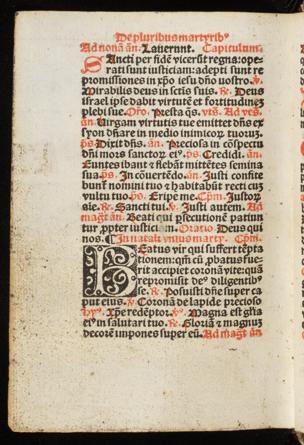 De pluribus martyribꝰ
Ad nonā añ. Tanernnt. Capitulum.
SAncti per fidē vicerūt regna: ope-
rati sunt iusticiam: adepti sunt re
promissiones in xp̄o iesu dño vostro. ꝶ.
Mirabilis deus in sctis suis. ꝶ. Deus
israel ipse dabit virtutē et fortitudinez
plebi sue. Oro. Presta q̄s. vts. Ad vesp.
añ. Virgam virtutis tue emittet dñs ex
syon dñare in medio inimicoꝝ tuoruz.
ps. Dixit dñs. añ. Preciosa in cōspectu
dñi mors sanctoꝝ eiꝰ. ps. Credidi. añ.
Euntes ibant ⁊ flebāt mittētes semina
sua. ps. In cōuertēdo. añ. Justi confite
bunt nomini tuo ⁊ habitabūt recti cuz
vultu tuo. ps. Eripe me. Cpm. Justoꝝ
aīe. ꝶ. Sancti tui. ꝟ. Justi autem. Ad
magt añ. Beati qui persecutionē patiun
tur ꝓpter iusticiam. Oratio. Deus qui
nos. In natali vnius marty. Cpm.
BEatus vir qui suffert tēpta
tionem: qm̄ cū ꝓbatus fue-
rit accipiet coronā vite: quā
repromisit deꝰ diligentibꝰ
se. ꝶ. Posuisti dñe super ca
put eius. ꝟ. Coronā de lapide precioso
hyꝰ. Xp̄e redēptor. ꝟ. Magna est glia
eiꝰ in salutari tuo. ꝶ. Gloriā ⁊ magnuz
decorē impones super eū. Ad magt añ